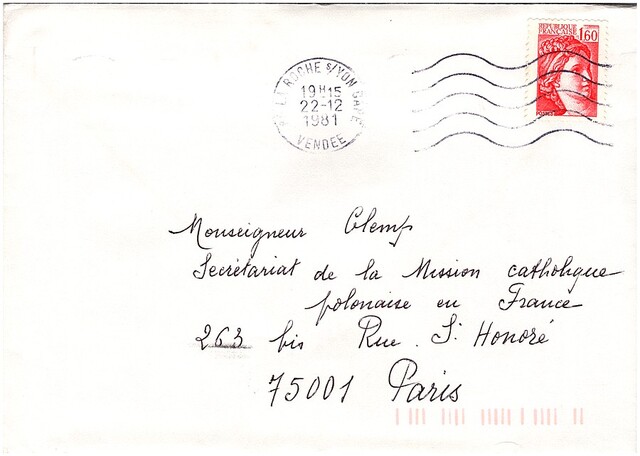 REPUBLIQUE
FRANÇAISE 1,60
LA ROCHE S/YON GARE
19H15
22-12
1981
VENDEE
Monseigneur Glemp
Secrétariat de la Mission catholique
polonaise en France
263 bis Rue St Honoré
75001 Paris